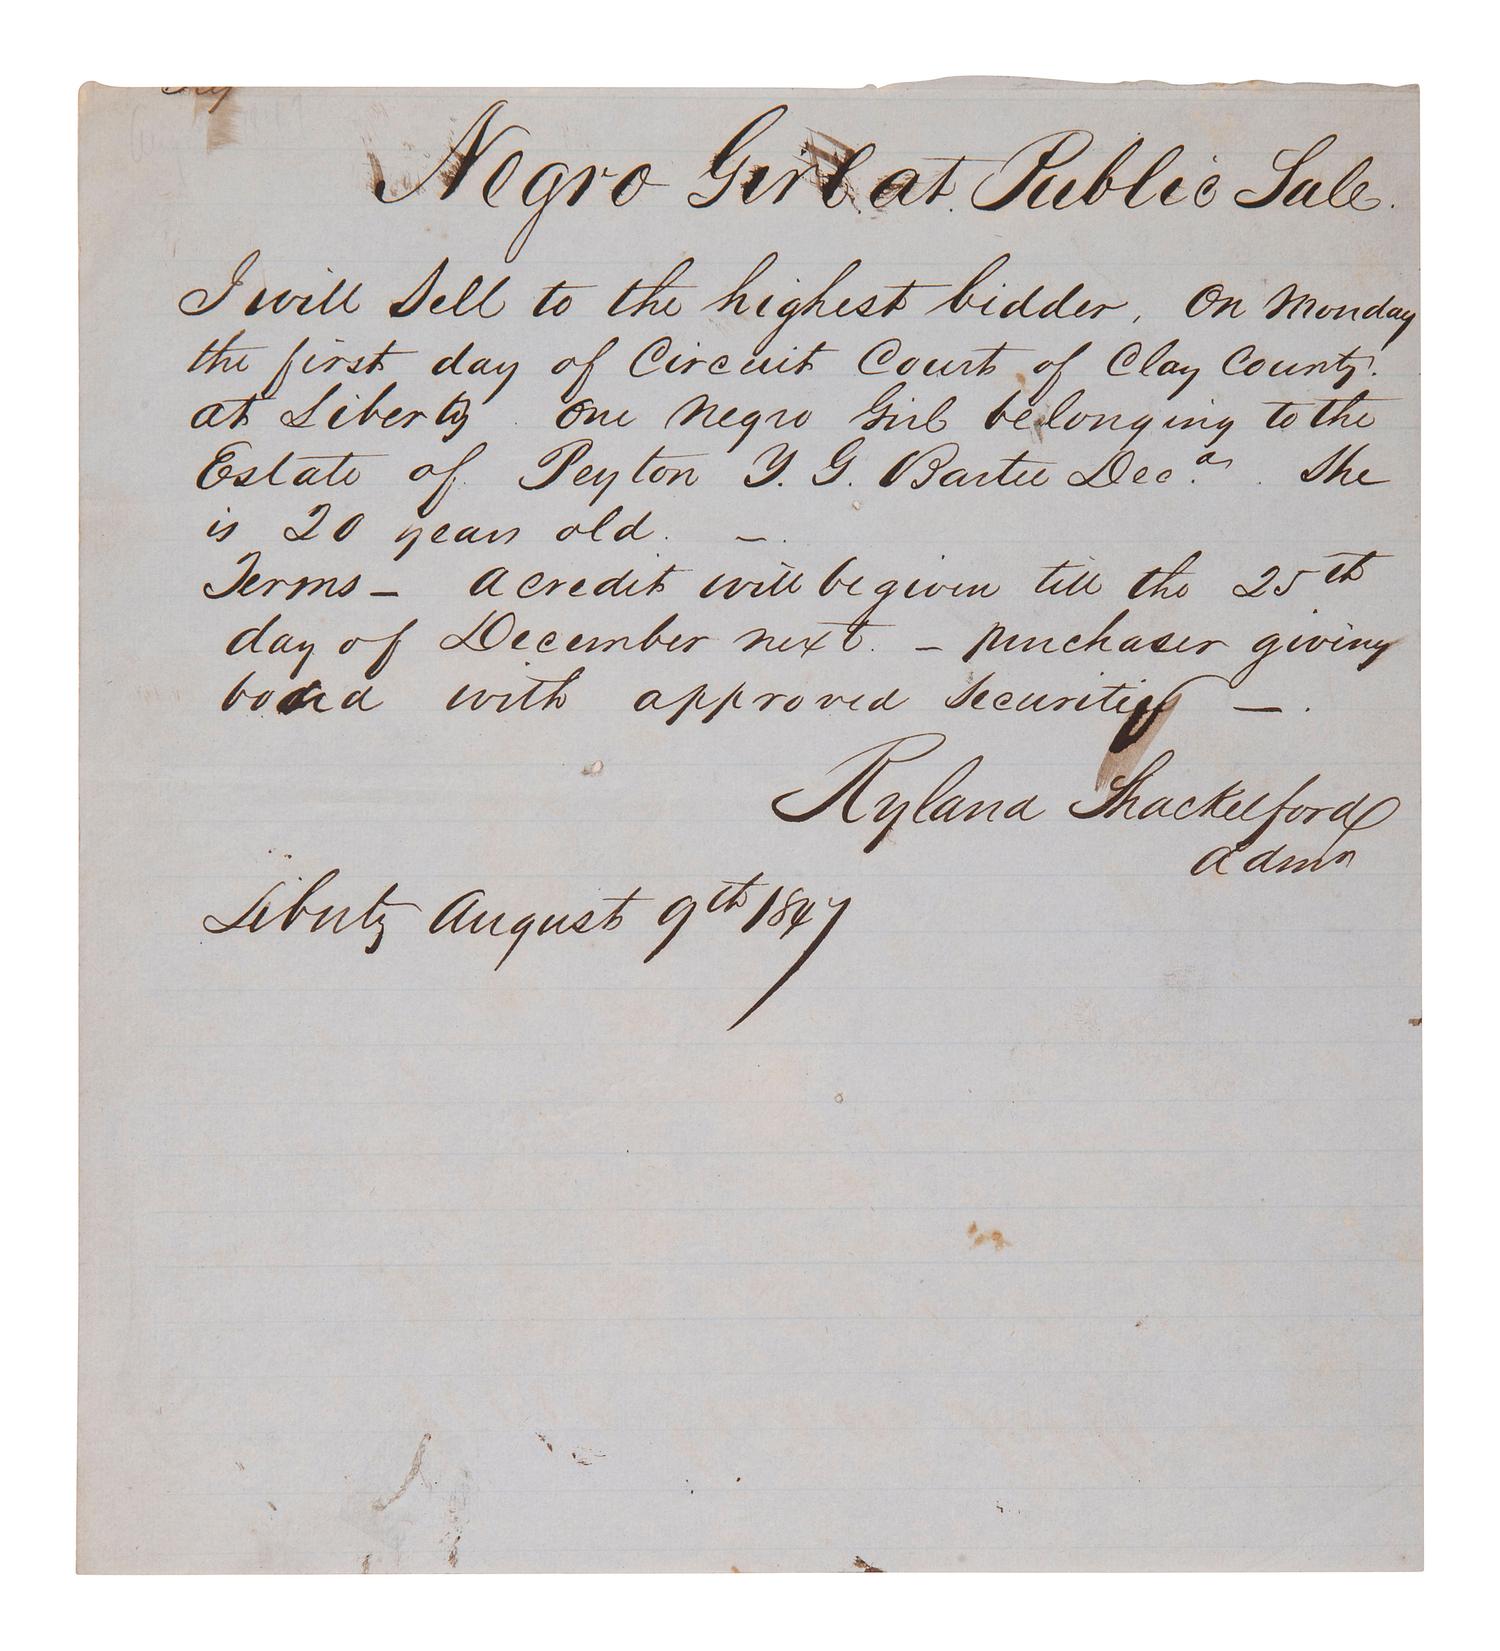 Negro Girl at Public Sale.
I will Sell to the highest bidder, On Monday
the first day of Circuit Court of Clay County.
at Liberty One Negro Girl belonging to the
Estate of Peyton Y. G. Bartee Dec.d She
is 20 years old. —
Terms — A credit will be given till the 25th
day of December next. — purchaser giving
bond with approved Securities —.
Ryland Shackelford
Admr
Liberty August 9th 1847